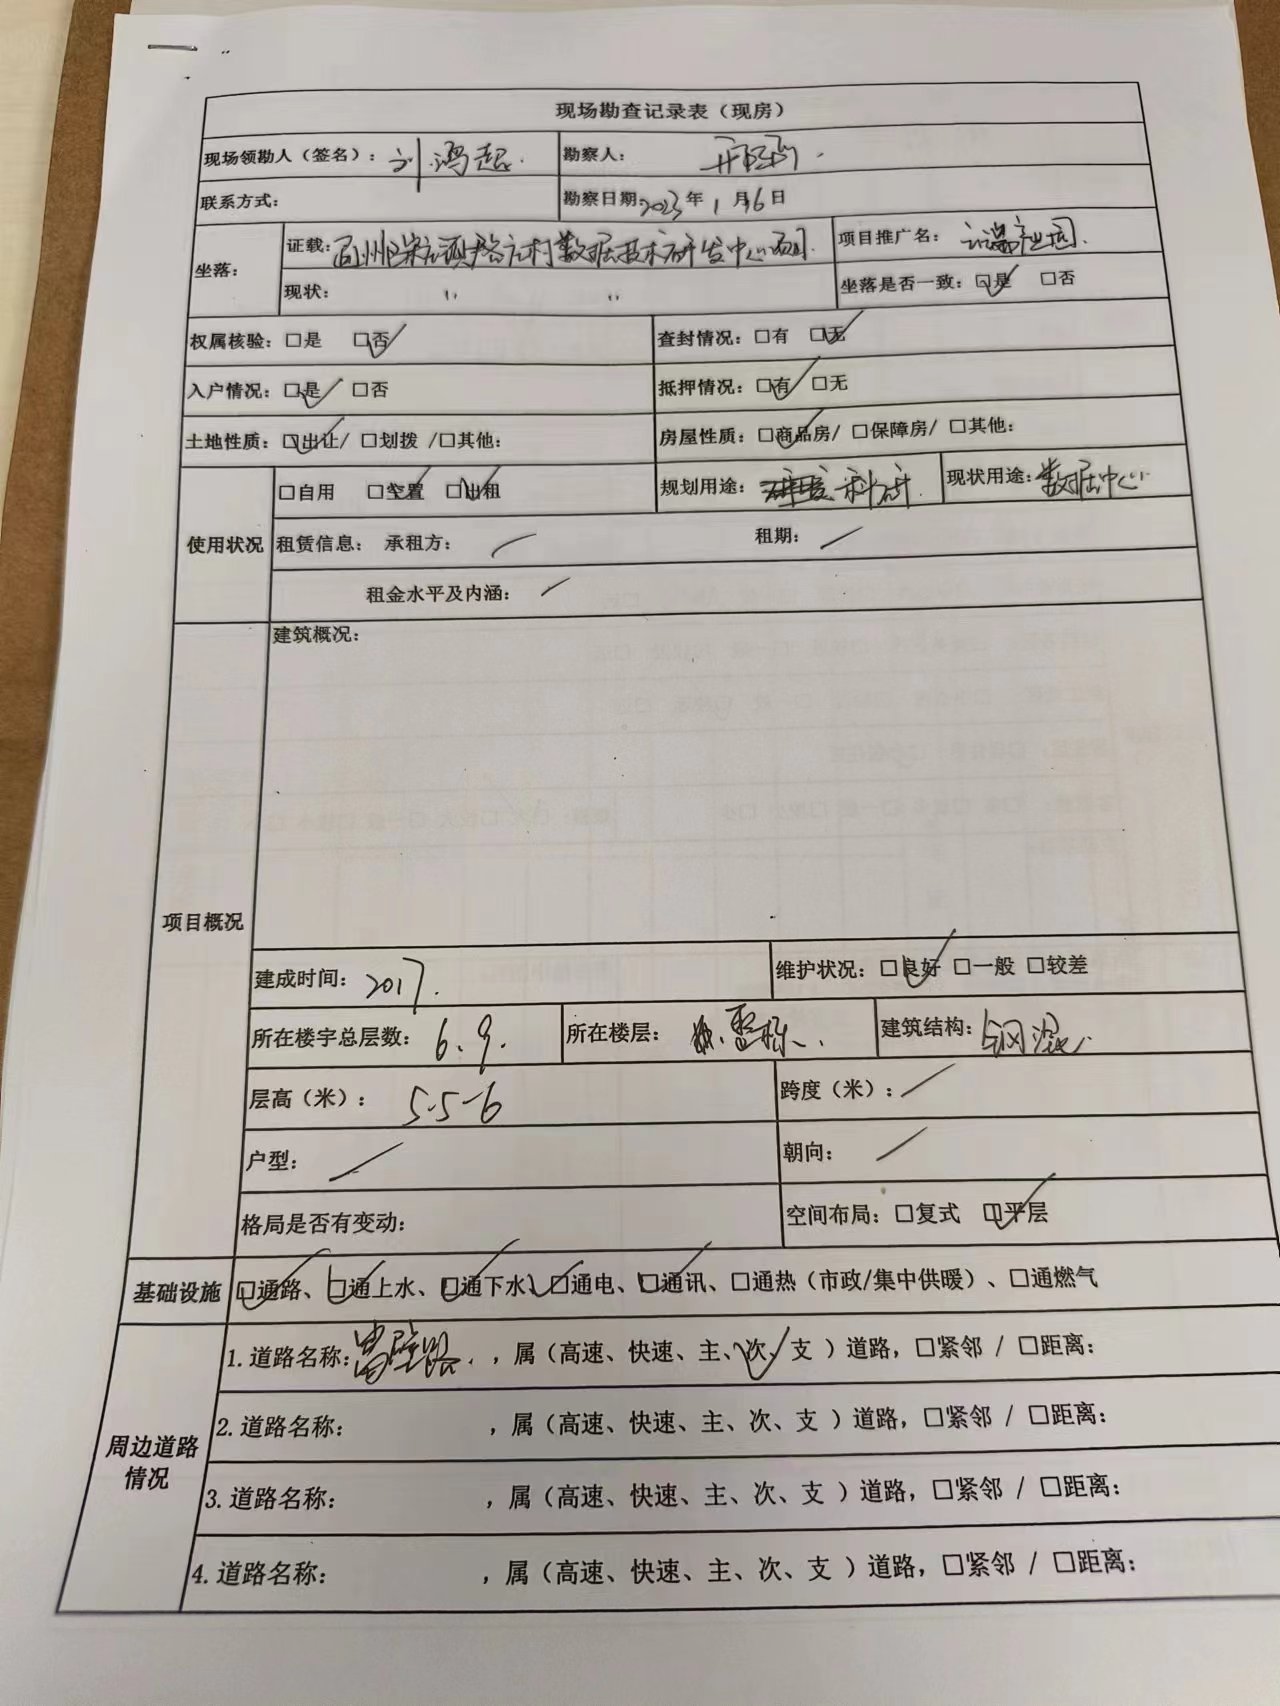 现场勘查记录表（现房）
现场领勘人（签名）：刘鸿起. 勘察人：
联系方式： 勘察日期：2023年1月6日
坐落： 证载：州区宋庄镇 庄村数据技术研发中心项目. 项目推广名： 产业园.
现状： " " 坐落是否一致：☑是 □否
权属核验：□是 ☑否 查封情况：□有 ☑无
入户情况：☑是 □否 抵押情况：☑有 □无
土地性质：☑出让/ □划拨 /□其他： 房屋性质：☑商品房/ □保障房/ □其他：
使用状况 □自用 ☑空置 ☑出租 规划用途：科研. 现状用途：数据中心.
租赁信息： 承租方：／ 租期：／
租金水平及内涵：／
项目概况 建筑概况：
建成时间：2017. 维护状况：☑良好 □一般 □较差
所在楼宇总层数：6.9. 所在楼层：整栋. 建筑结构：钢混.
层高（米）：5.5-6 跨度（米）：／
户型：／ 朝向：／
格局是否有变动： 空间布局：□复式 ☑平层
基础设施 ☑通路、☑通上水、☑通下水、☑通电、☑通讯、□通热（市政/集中供暖）、□通燃气
周边道路情况 1.道路名称：富壁路.，属（高速、快速、主、次✓、支 ）道路，□紧邻 / □距离：
2.道路名称： ，属（高速、快速、主、次、支 ）道路，□紧邻 / □距离：
3.道路名称： ，属（高速、快速、主、次、支 ）道路，□紧邻 / □距离：
4.道路名称： ，属（高速、快速、主、次、支 ）道路，□紧邻 / □距离：